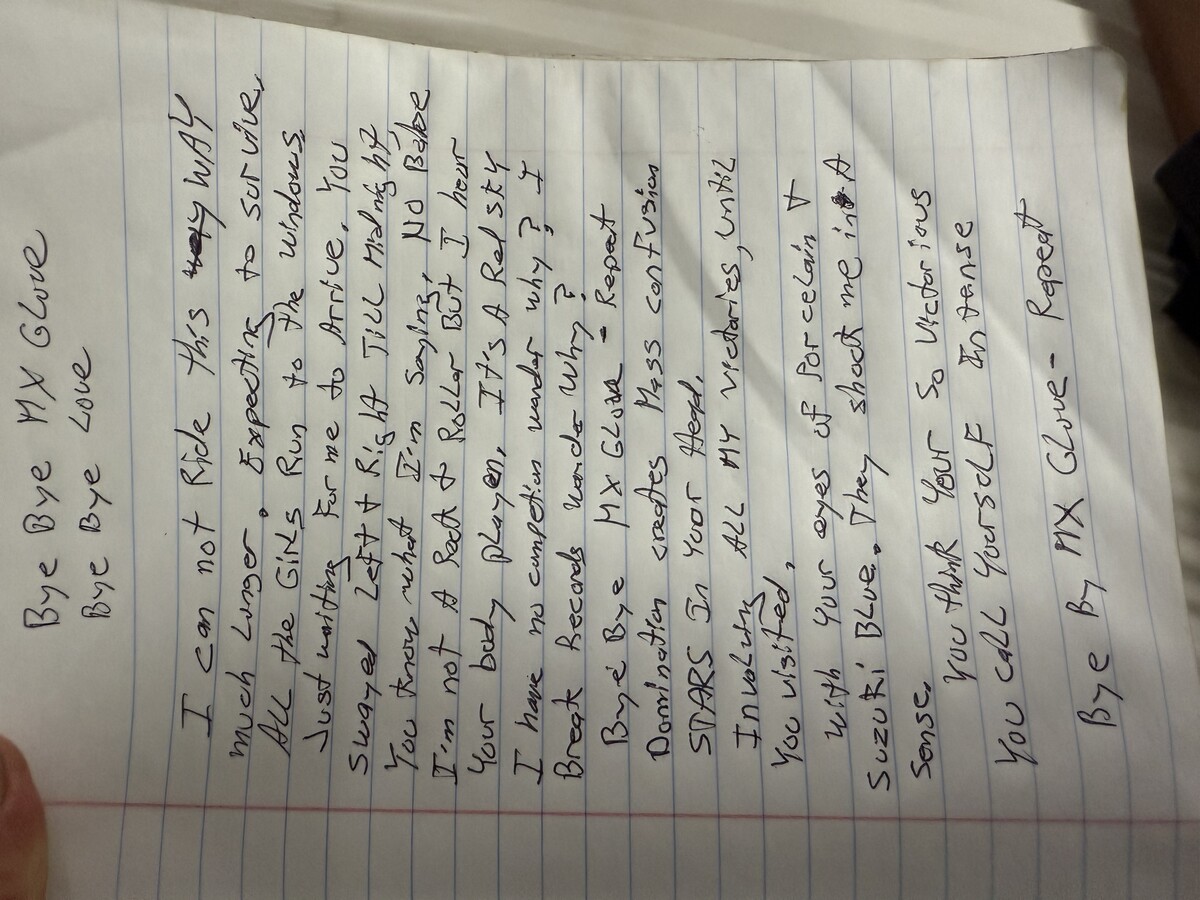 Bye Bye MX Glove
Bye Bye Love
I can not Ride this WAY
much Longer. Expecting to survive,
ALL the GirLs Run to the windows
Just waiting For me to Arrive. You
Swayed Left & Right TiLL Midnight
You Know what I'm saying, NO
I'm not A Rock & Roller But I hear
Your body playen, It's A Red sky
I have no competion wonder why? I
Break Records wonder Why?
Bye Bye MX GLove - Repeat
Domination creates Mass confusion
STARS In Your Head.
InvoLving ALL MY victories, untiL
You visited.
With Your eyes of Porcelain &
Suzuki BLue. They shoot me in A
Sense.
You think Your So Victorious
You caLL YourseLF Intense
Bye By MX Glove - Repeat